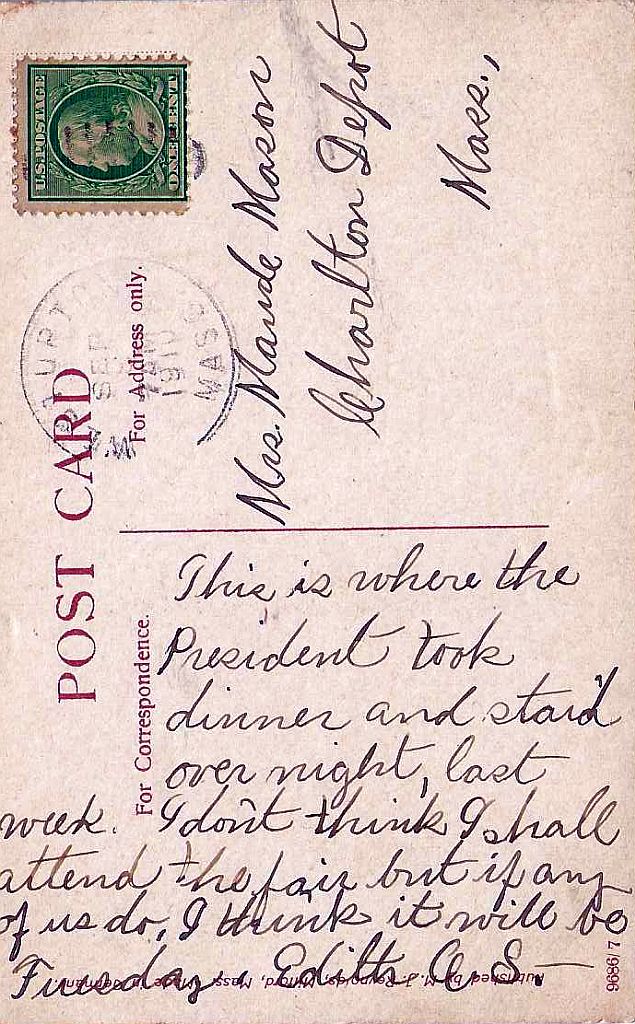 U.S. POSTAGE
ONE CENT
UPTON
SEP
1910
MASS
POST CARD
For Address only.
Mrs. Maude Mason
Charlton Depot
Mass.,
For Correspondence.
This is where the
President took
dinner and staid
over night, last
week. I don't think I shall
attend the fair but if any
of us do, I think it will be
Tuesday, Edith A S—
Published by M. J. Reynolds, Milford, Mass. Made in Germany
9686/7